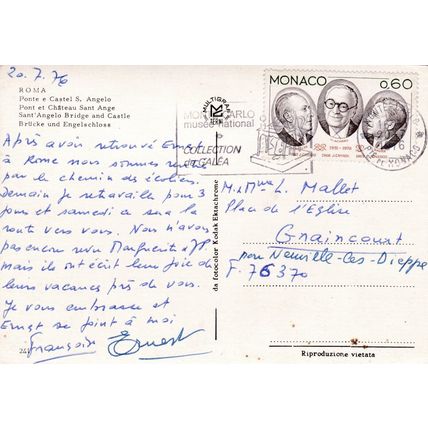 20.7.76
ROMA
Ponte e Castel S. Angelo
Pont et Château Sant Ange
Sant'Angelo Bridge and Castle
Brücke und Engelschloss
Après avoir retrouvé Ernest
à Rome nous sommes
par le chemin des écoliers.
Demain je retravaille pour 3
jours et samedi ce sera la
route vers vous. Nous n'avons
pas encore revu Marguerite
mais ils ont écrit leur joie de
leurs vacances près de vous.
Je vous embrasse et
Ernest se joint à moi
Françoise Ernest
MULTIGRAFICA
TERNI
da fotocolor Kodak Ektachrome
MONTE CARLO
musée national
COLLECTION
DE GALÉA
MONACO 0,60
MONACO
M. Mme L. Mallet
Place de l'Eglise
Graincourt
par Neuville-les-Dieppe
F. 76370
Riproduzione vietata